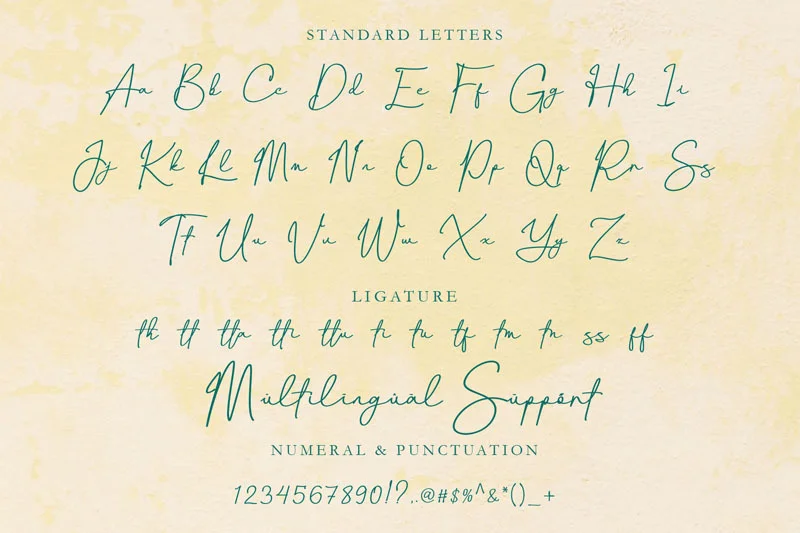 STANDARD LETTERS
Aa Bb Cc Dd Ee Ff Gg Hh Ii
Jj Kk Ll Mm Nn Oo Pp Qq Rr Ss
Tt Uu Vv Ww Xx Yy Zz
LIGATURE
th tt tta tti ttu ti tu tf tm tn ss ff
Multilingual Support
NUMERAL & PUNCTUATION
1234567890!?,.@#$%^&*()_+